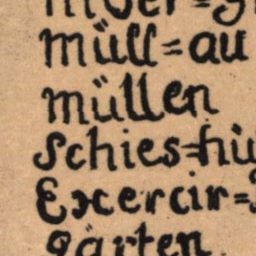 müll=au
müllen
Schies=hü
Exercir=
gärten